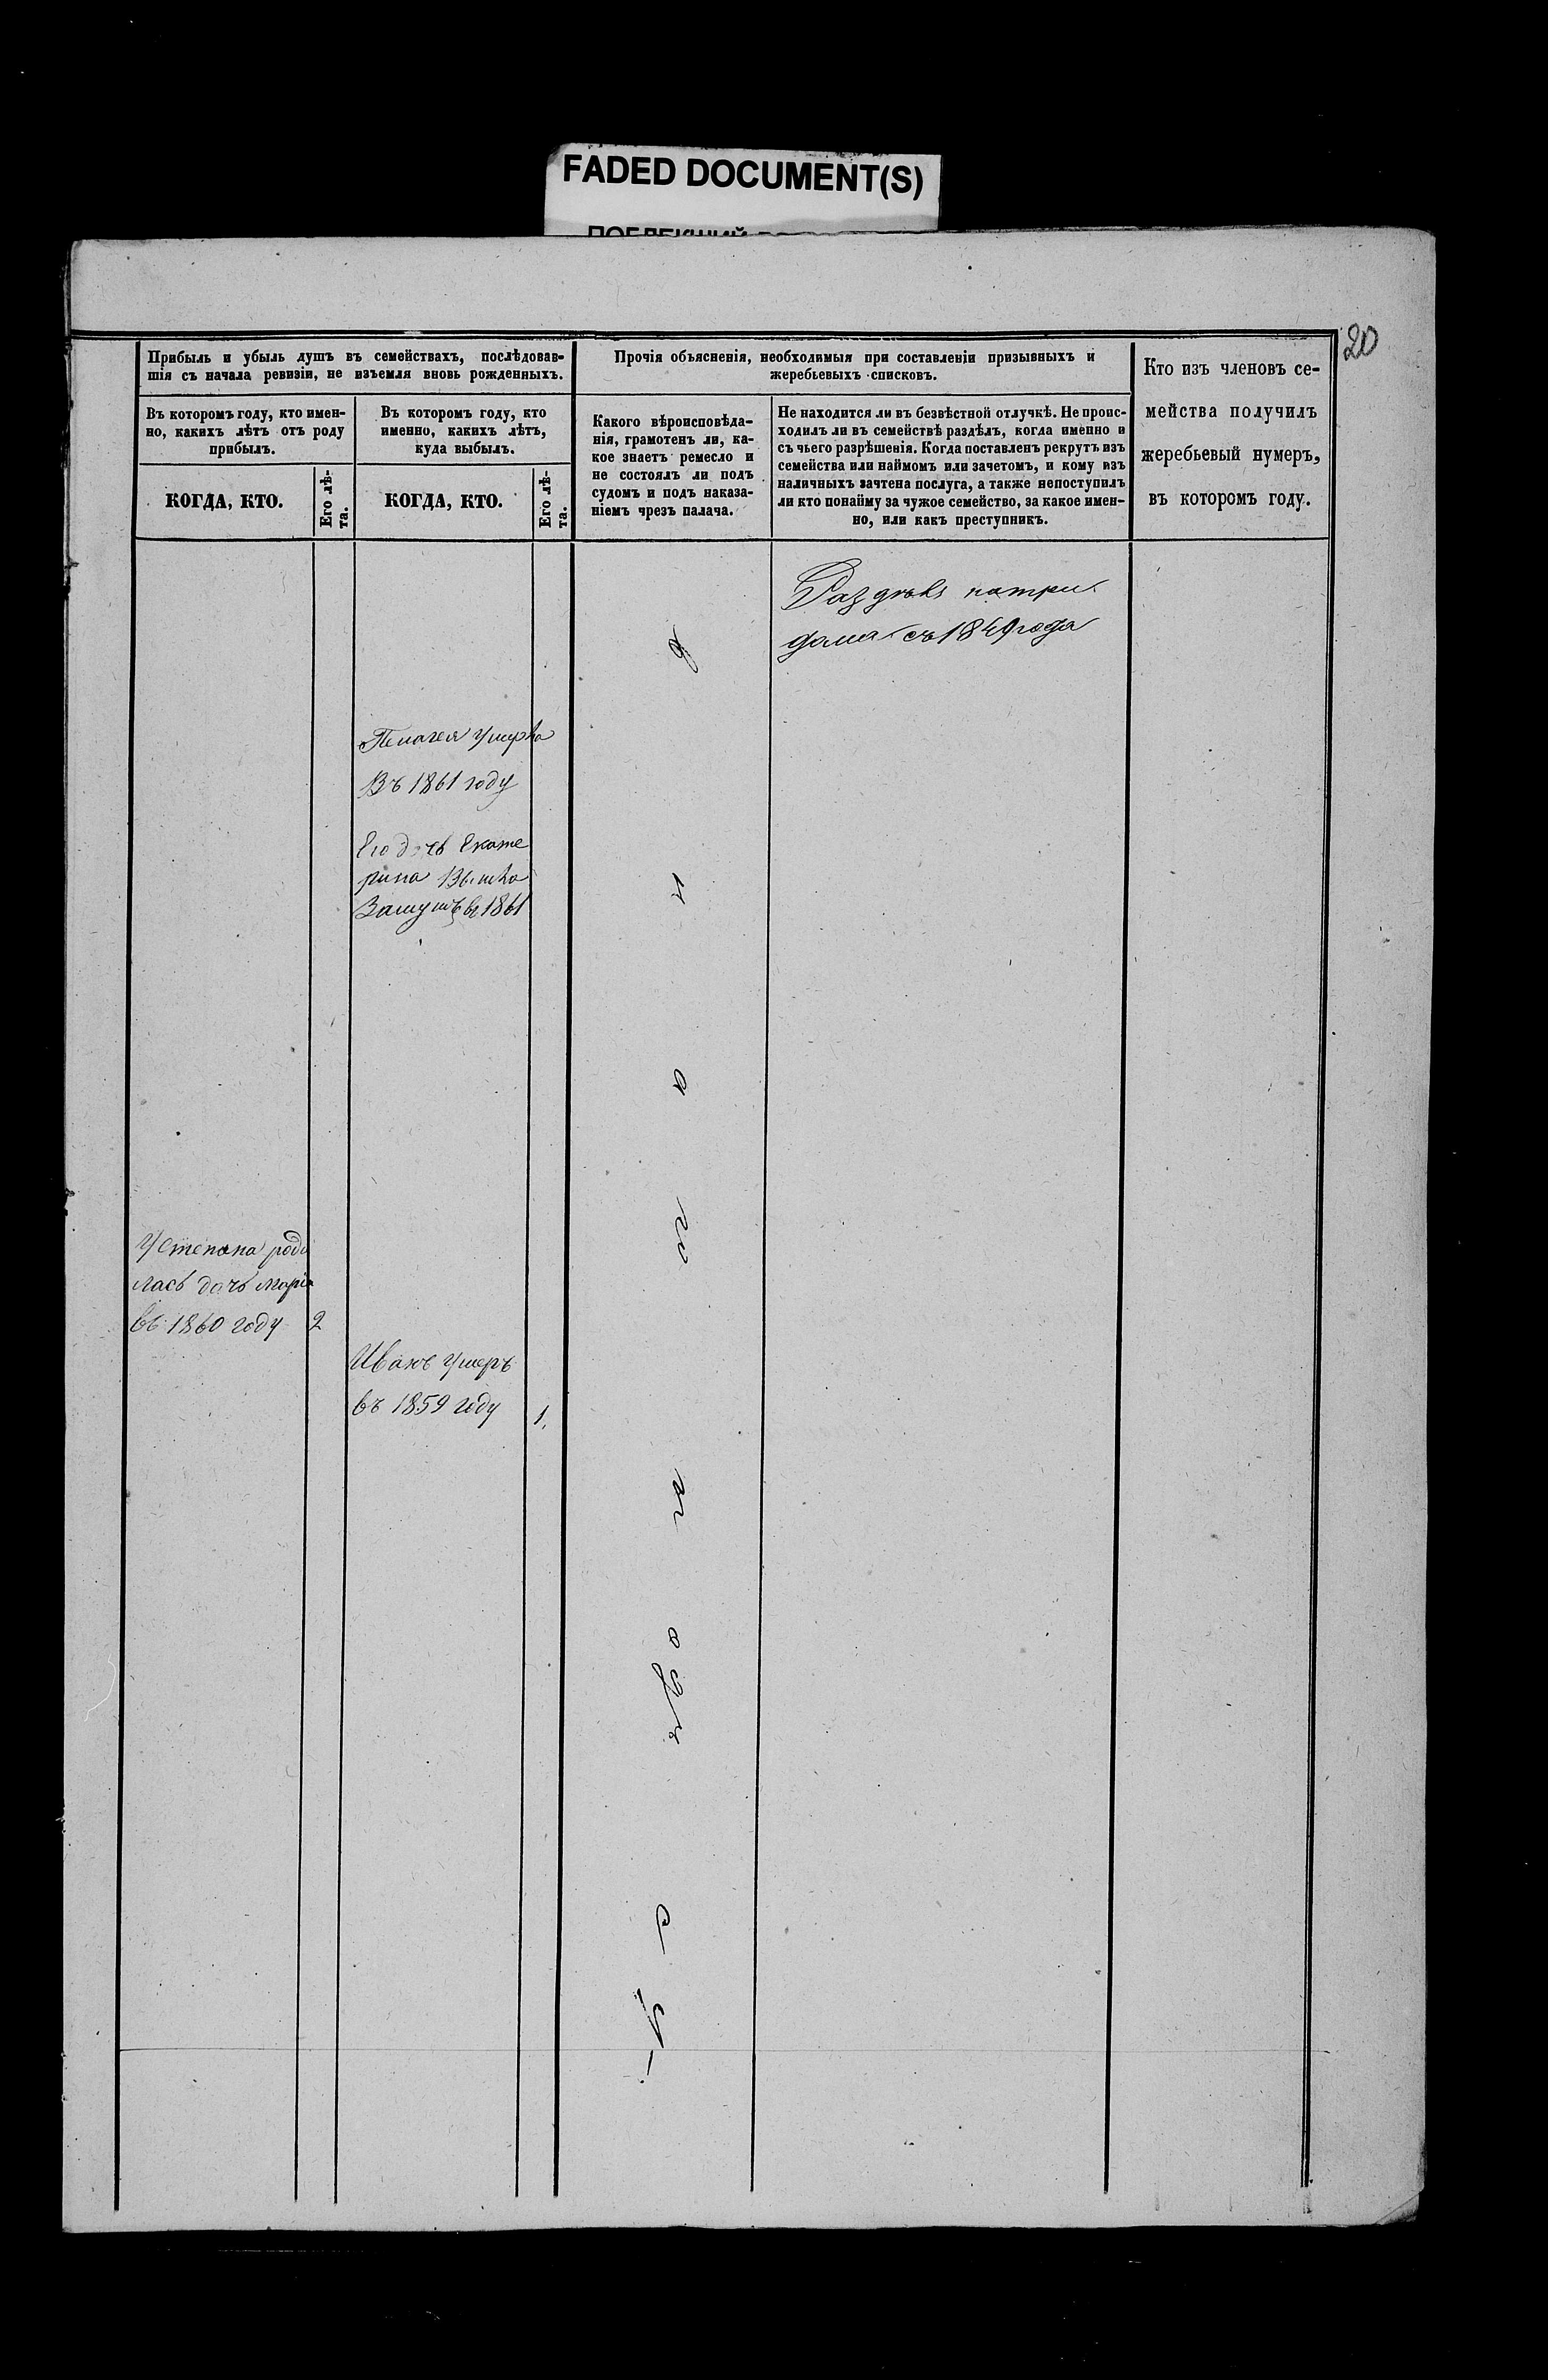 FADED DOCUMENT(S)
20
Прибыль и убыль душъ въ семействахъ, послѣдовав-
шія съ начала ревизіи, не изъемля вновь рожденныхъ.
Прочія объясненія, необходимыя при составленіи призывныхъ и
жеребьевыхъ списковъ.
Кто изъ членовъ се-
мейства получилъ
жеребьевый нумеръ,
въ которомъ году.
Въ которомъ году, кто имен-
но, какихъ лѣтъ отъ роду
прибылъ.
Въ которомъ году, кто
именно, какихъ лѣтъ,
куда выбылъ.
Какого вѣроисповѣда-
нія, грамотенъ ли, ка-
кое знаетъ ремесло и
не состоялъ ли подъ
судомъ и подъ наказа-
ніемъ чрезъ палача.
Не находится ли въ безвѣстной отлучкѣ. Не проис-
ходилъ ли въ семействѣ раздѣлъ, когда именно и
съ чьего разрѣшенія. Когда поставленъ рекрутъ изъ
семейства или наймомъ или зачетомъ, и кому изъ
наличныхъ зачтена послуга, а также непоступилъ
ли кто понайму за чужое семейство, за какое имен-
но, или какъ преступникъ.
КОГДА, КТО.
Его лѣ-
та.
КОГДА, КТО.
Его лѣ-
та.
Раздѣлъ натри
дома съ 1849 года
Пелагея умерла
Въ 1861 году
Его дочь Екате
рина Вышла
Замужъ въ 1861
У Степана роди
лась дочь Марія
въ 1860 году 2
Иванъ умеръ
въ 1859 году 1.